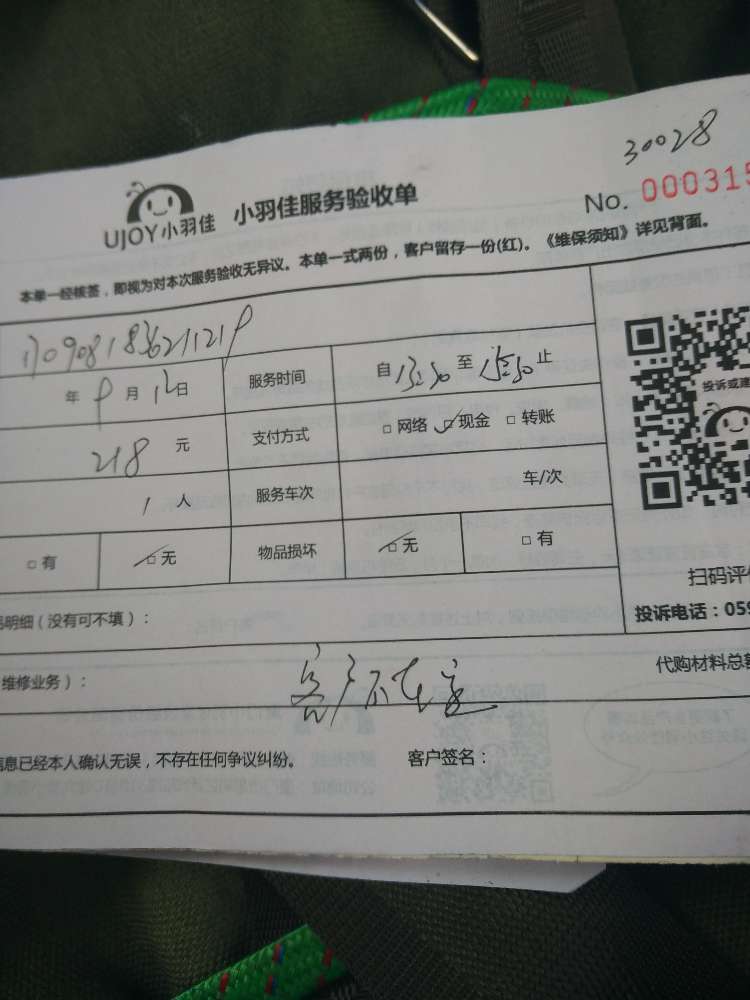 30028
UJOY小羽佳 小羽佳服务验收单 No. 000315
本单一经核签，即视为对本次服务验收无异议。本单一式两份，客户留存一份(红)。《维保须知》详见背面。
年 9 月 12 日 服务时间 自 13:30 至 15:30 止
218 元 支付方式 □ 网络 □ 现金 □ 转账
1 人 服务车次 车/次
□ 有 □ 无 物品损坏 □ 无 □ 有
投诉或建
扫码评
明细（没有可不填）：
投诉电话：059
维修业务）：
客户不在室
代购材料总
信息已经本人确认无误，不存在任何争议纠纷。 客户签名：